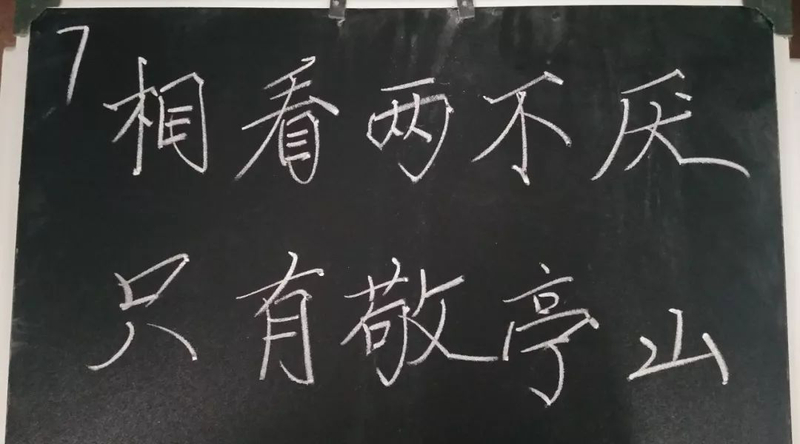 7
相看两不厌
只有敬亭山